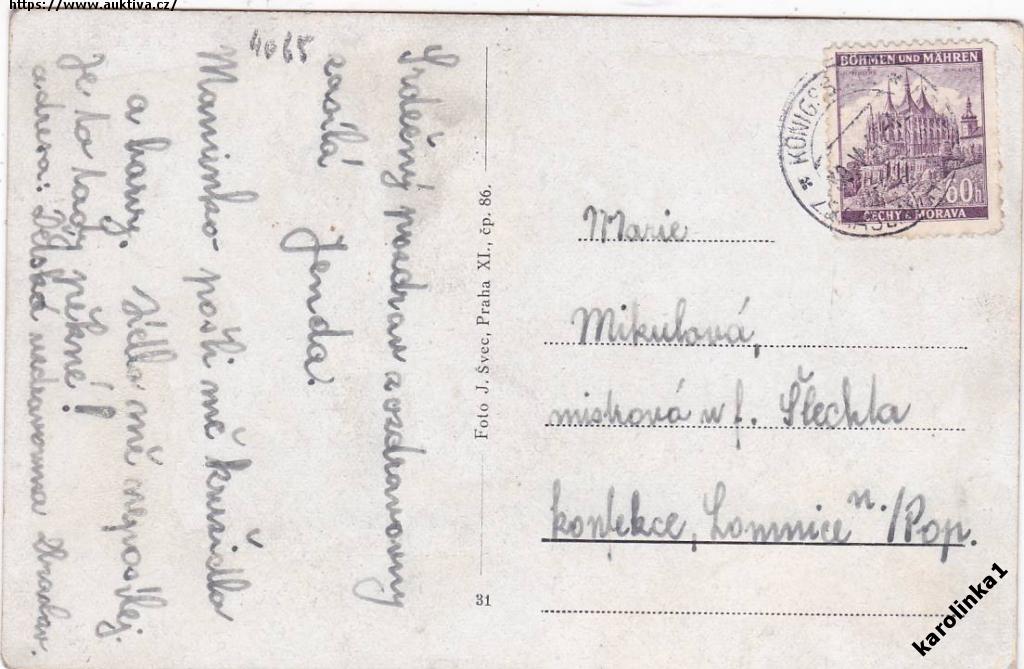 https://www.auktiva.cz/
4065
Srdečný pozdrav z ozdravovny
zasílá
Jenda.
Maminko pošli mě kružidla
a barvy. Jídlo mě neposílej.
Je to tady pěkné!
adresa: Dětská ozdravovna
Foto J. Švec, Praha XI., čp. 86.
31
BÖHMEN UND MÄHREN
60h
ČECHY A MORAVA
* KÖNIGS
Marie
Mikulová,
mistrová u f. Šlechta
konfekce, Lomnice n./Pop.
karolinka1